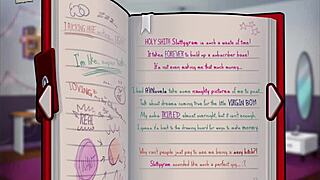 I'm like,
LOVING
REAL
HOLY SHITE Sluttygram is such a waste of time!
It takes FOREVER to build up a subscriber base!
It's not even making me that much money...
I had @ take some naughty pictures of me to post.
Talk about dreams coming true for the little VIRGIN BOY!
My subs TRIPLED almost overnight, but it isn't enough.
I gonna go back to the drawing board for ways to make money.
Why can't people just pay to see me being a sexy bitch?!
Sluttygram sounded like such a perfect gig... :(